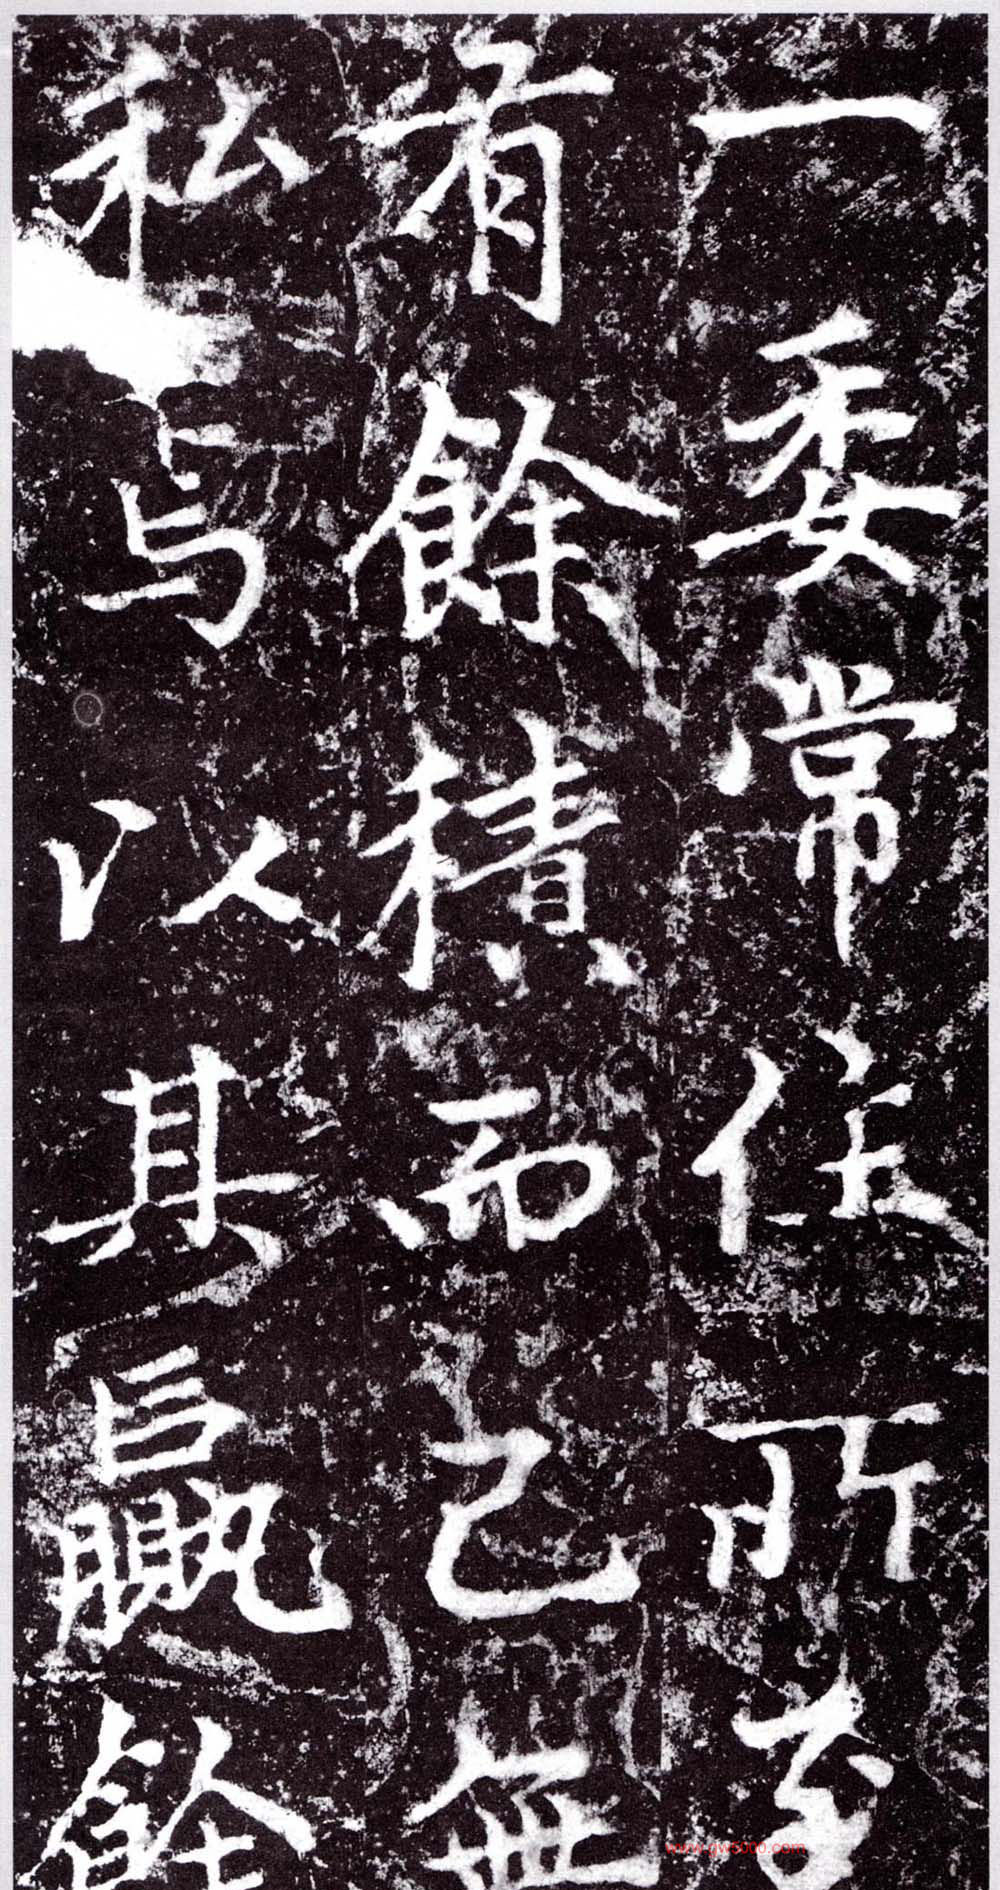 一委常住所至
有餘積而己無
私与以其羸餘
www.gw5000.com